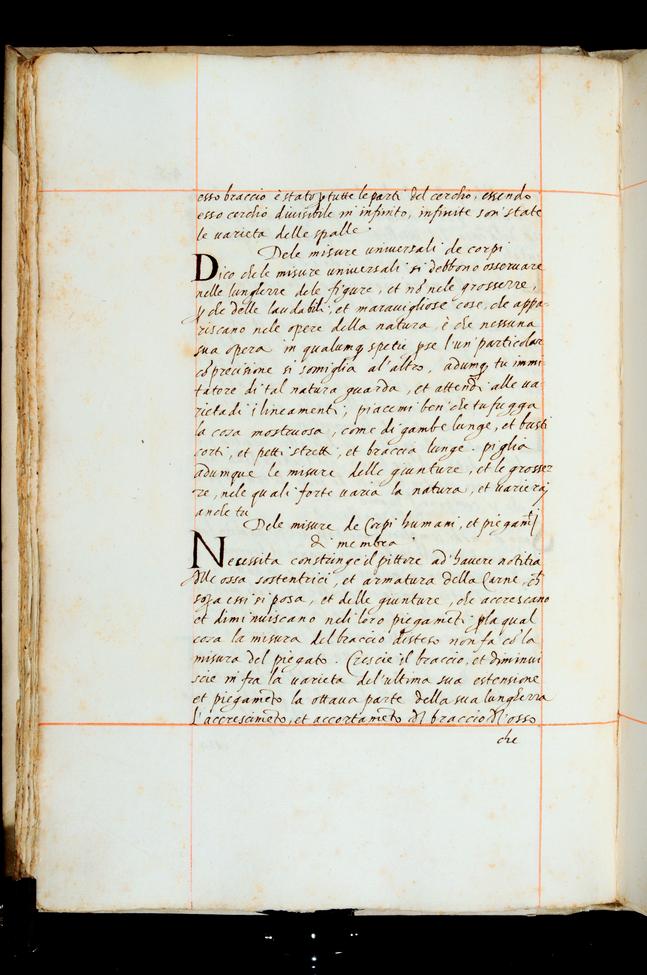 esso braccio è stato p tutte le parti del cerchio, essendo
esso cerchio divisibile in infinito, infinite son' state
le varietà delle spalle.
Dele misure universali de corpi
Dico che le misure universali si debbono osservare
nelle lunghezze dele figure, et nō nele grossezze,
p che delle laudabili, et maravigliose cose, che appa-
riscano nele opere della natura, è che nessuna
sua opera in qualumq spetie p se l'un' particolar
cō precisione si somiglia al'altro, adumq tu immi
tatore di tal natura guarda, et attendi alle va
rieta di i lineamenti; piacemi ben' che tu fugga
la cosa mostruosa, come di gambe lunge, et busti
corti, et petti stretti, et braccia lunge. piglia
adumque le misure delle giunture, et le grossez
ze, nele quali forte varia la natura, et varierai
anche tu
Dele misure de Corpi humani, et piegamti
di membra.
Necessita constringe il pittore ad' havere notitia
dlle ossa sostentrici, et armatura della Carne, ch
sopra essi si posa, et delle giunture, che accrescano
et diminuiscano neli loro piegamēti p la qual
cosa la misura del braccio disteso non fa cō la
misura del piegato. Crescie il braccio, et diminui
scie in fra la varieta del'ultima sua estensione
et piegamēto la ottava parte della sua lunghezza
L'accrescimēto, et accortamēto dl braccio dl'osso
che